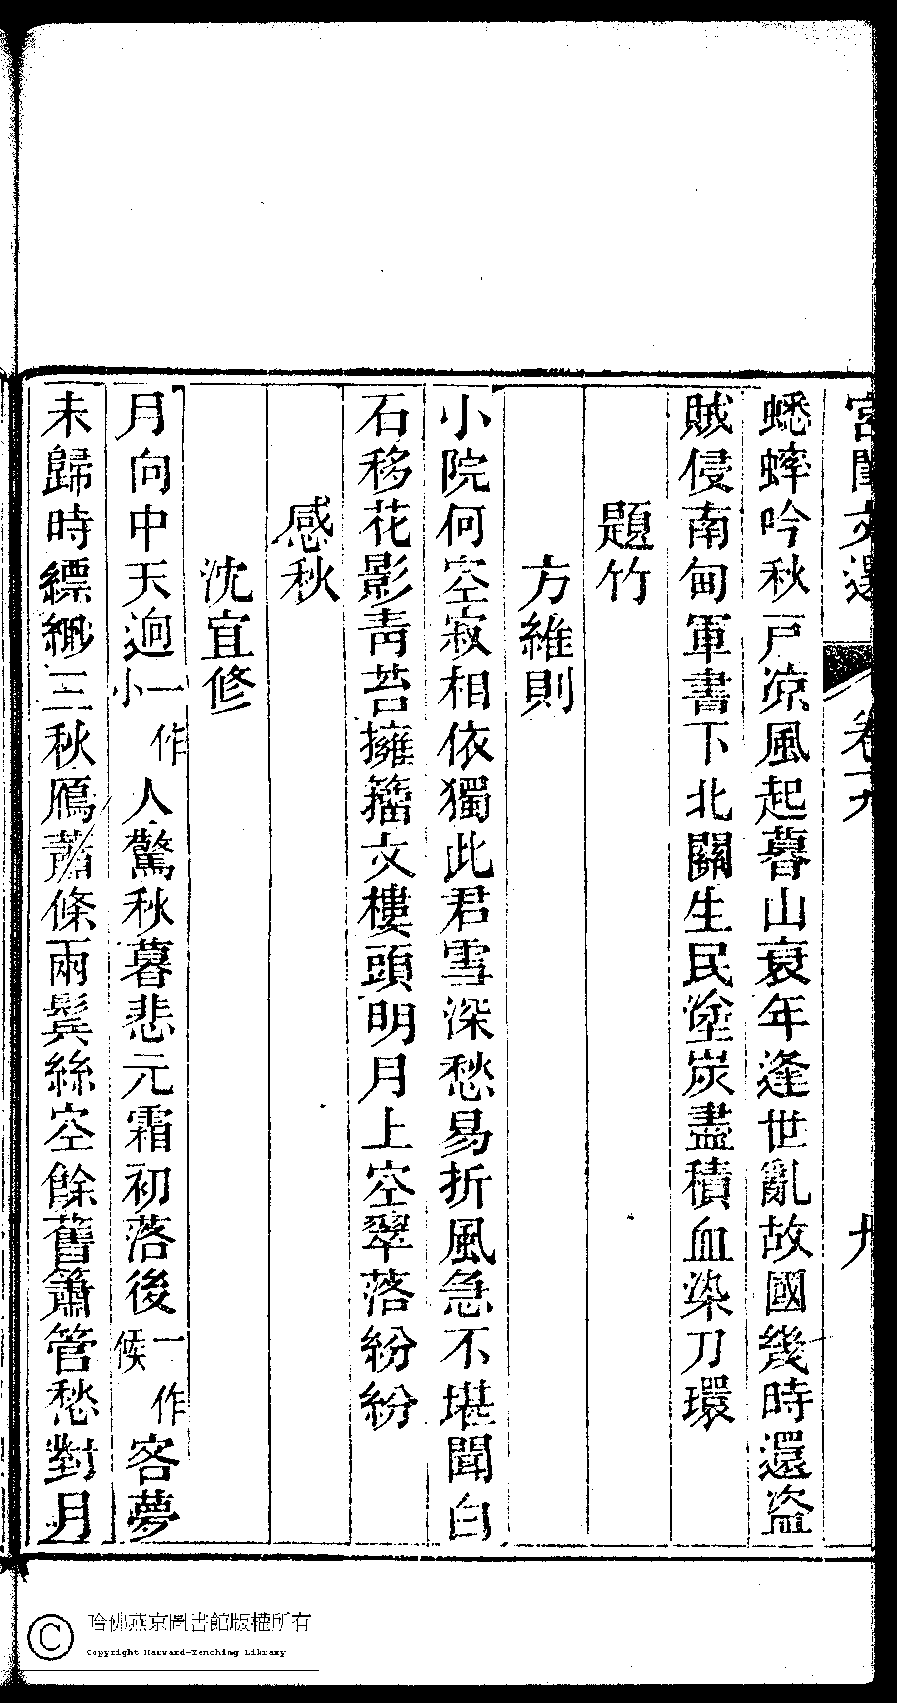 宮閨文選 卷十九 九
蟋蟀吟秋戸凉風起暮山衰年逢世亂故國幾時還盜
賊侵南甸軍書下北關生民塗炭盡積血染刀環
題竹
方維則
小院何空寂相依獨此君雪深愁易折風急不堪聞白
石移花影青苔擁籀文樓頭明月上空翠落紛紛
感秋
沈宜修
月向中天逈一作小人驚秋暮悲元霜初落後一作候客夢
未歸時縹緲三秋鴈蕭條兩鬂絲空餘舊簫管愁對月
哈佛燕京圖書館版權所有
Copyright Harvard-Yenching Library